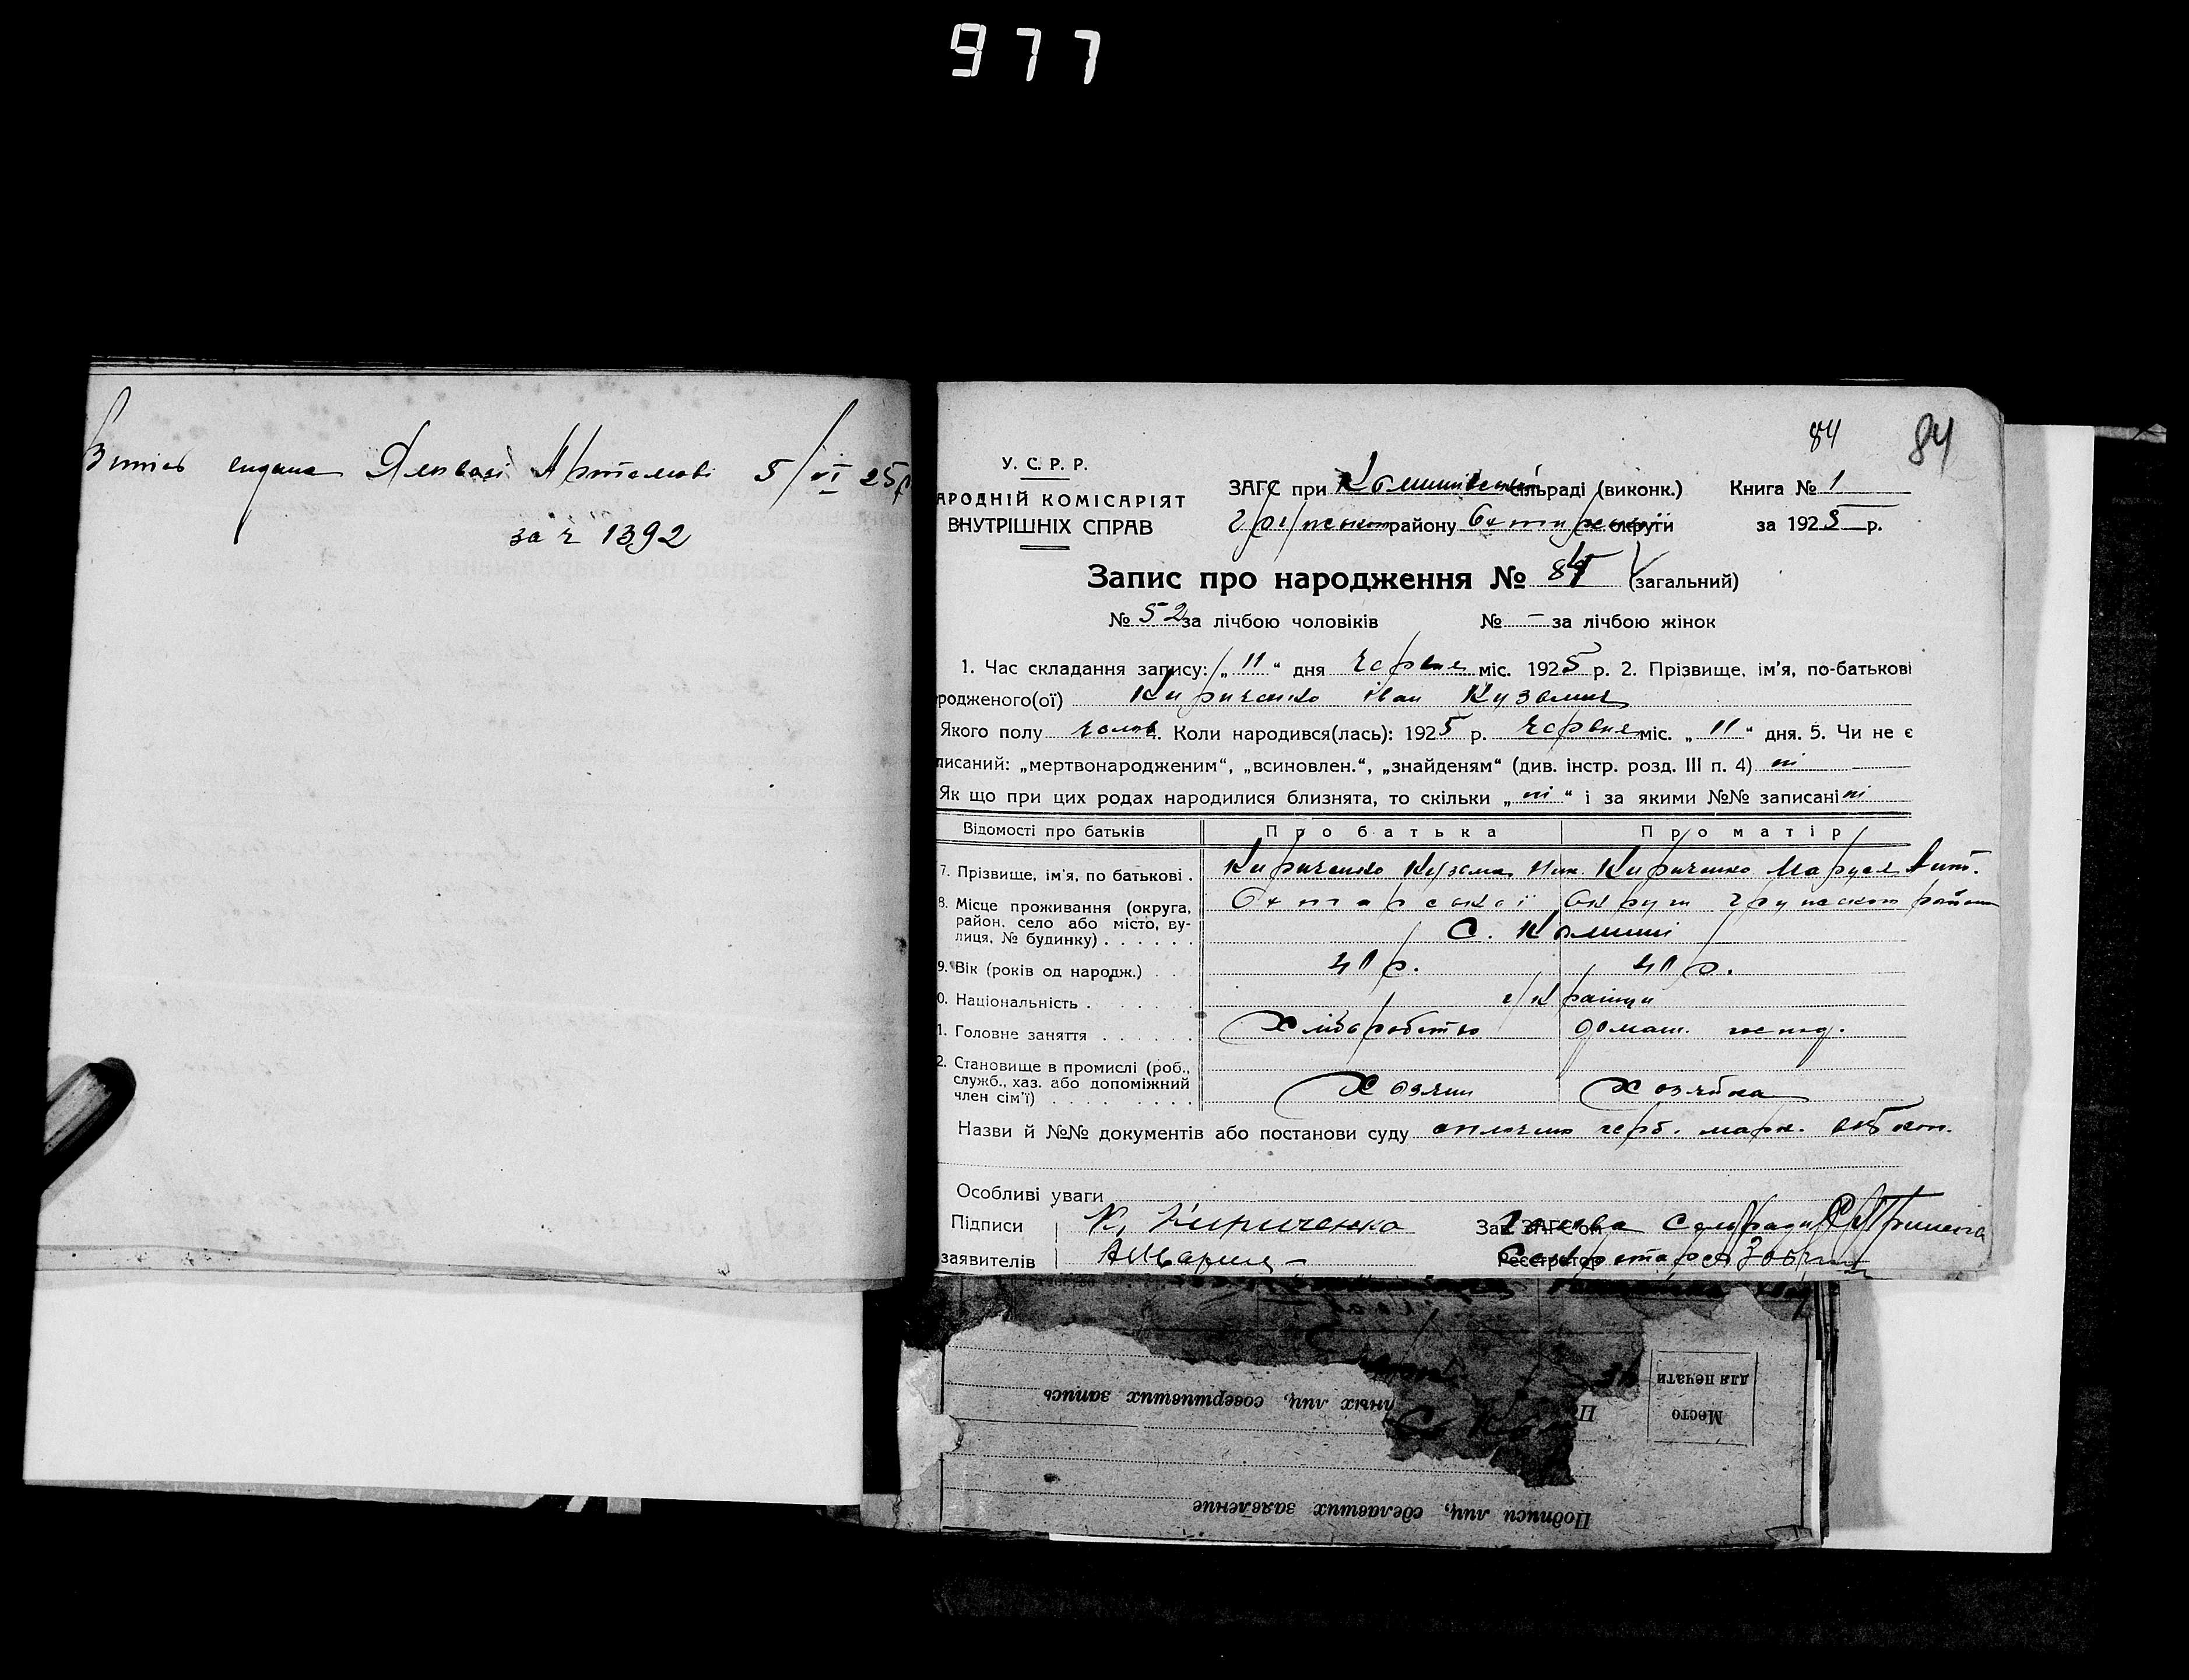 977
Витяг видана Яловазі Артемові 5/VI 25р
за ч 1392
84 84
У. С. Р. Р.
АРОДНІЙ КОМІСАРІЯТ
ВНУТРІШНІХ СПРАВ
ЗАГС при Комишівській сільраді (виконк.) Книга № 1
Грунському району Охтирської округи за 1925 р.
Запис про народження № 84 (загальний)
№ 52 за лічбою чоловіків № – за лічбою жінок
1. Час складання запису: „11“ дня червня міс. 1925 р. 2. Прізвище, ім'я, по-батькові
родженого(ої) Кириченко Іван Кузьмич
Якого полу чолов. 4. Коли народився(лась): 1925 р. червня міс. „11“ дня. 5. Чи не є
писаний: „мертвонародженим“, „всиновлен.“, „знайденям“ (див. інстр. розд. III п. 4) ні
Як що при цих родах народилися близнята, то скільки „ні“ і за якими №№ записані ні
Відомості про батьків Про батька Про матір
7. Прізвище, ім'я, по батькові . Кириченко Кузьма Ник. Кириченко Маруся Ант.
8. Місце проживання (округа, Охтирської Округи Грунського району
район, село або місто, ву-
лиця, № будинку) . . . . . . С. Комиші
9. Вік (років од народж.) . . 40 р. 40 р.
0. Національність . . . . . . українці
1. Головне заняття . . . . . . Хліборобство домаш. господ.
2. Становище в промислі (роб.,
служб., хаз. або допоміжний Хозяин Хозяйка
член сім'ї) . . . . . . . . .
Назви й №№ документів або постанови суду оплачено герб. марк. коп.
Особливі уваги
Підписи К. Кириченко Зав. ЗАГС'ом Голова Сельради
заявителів Реєстратор Секретарь
Место
для печати
ных лиц, совершивших запись
Подписи лиц, сделавших заявление